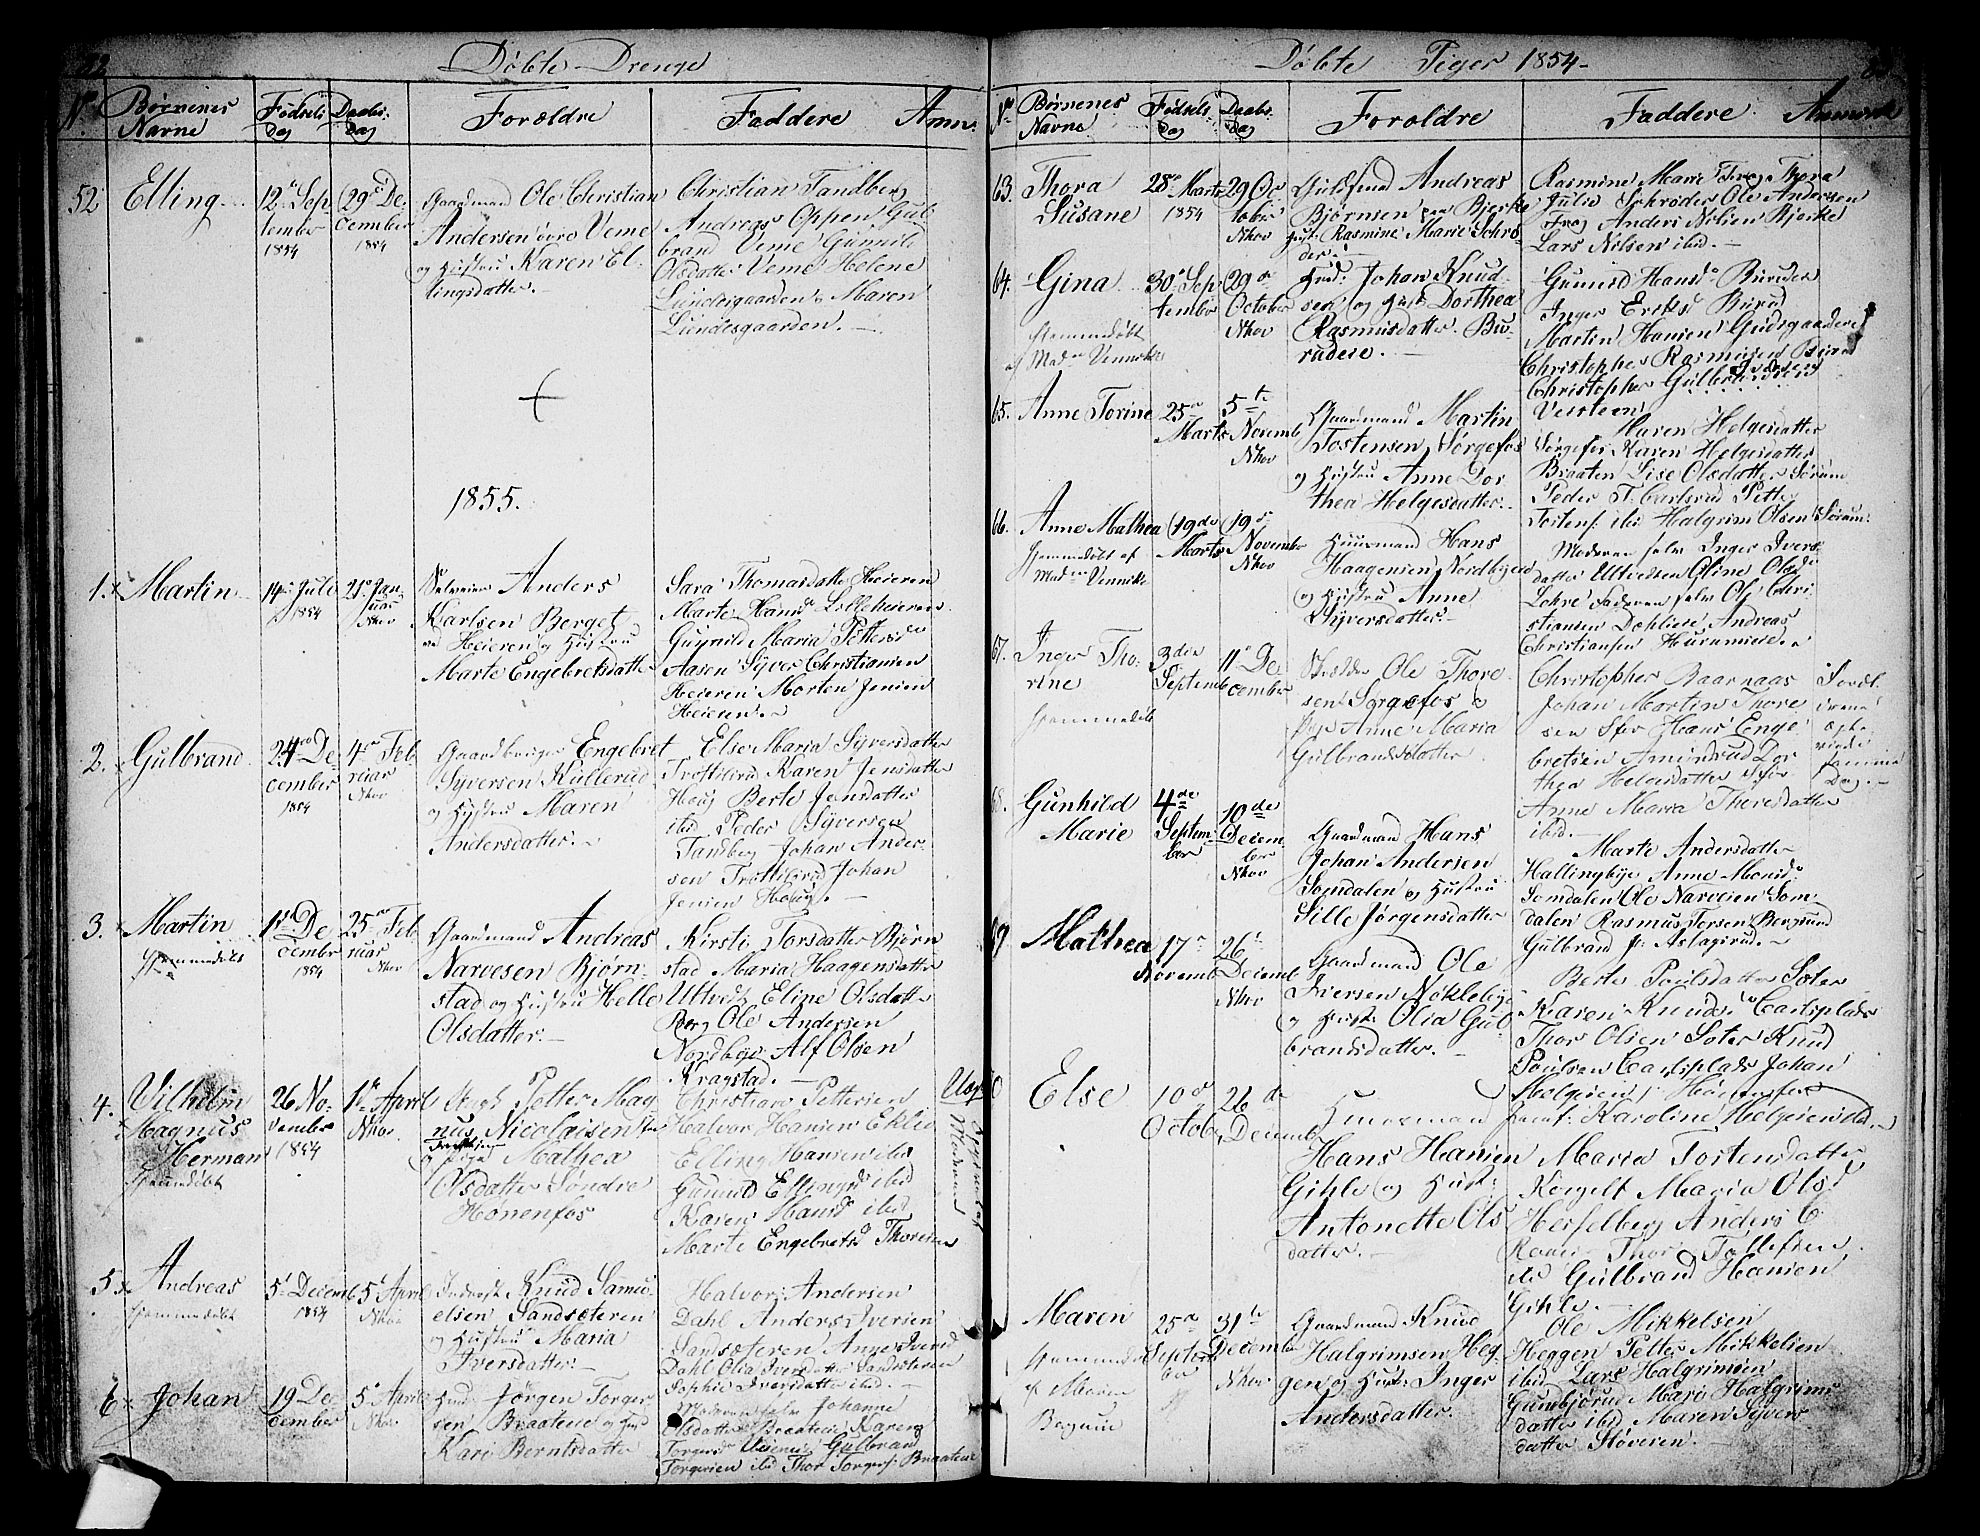 82
Døbte Drenge
No
Børnenes
Navne
Fødsels
Dag
Daabs
Dag
Forældre
Faddere
Anm:
52
Elling
12te Sep
tember
1854
29de De
cember
1854
Gaardmand Ole Christian
Andersen øvre Veme
og Hustru Karen El
lingsdatter.
Christian Tandberg
Andreas Oppen Gul
brand Veme Gunnild
Olsdatter Veme Helene
Lundesgaarden Maren
Lundesgaarden.
1855.
1.
Martin
14de Juli
1854
21de Jan
uar
Nkov
Anders
Karlsen Berget
Heieren og Hustru
Marte Engebretsdatter
Sara Thomasdatter Heieren
Marte Hansd Lilleheieren
Gunnild Maria Pettersd
Aasen Syver Christiansen
Heieren Morten Jensen
Heieren.
2.
Gulbrand
24de De
cember
1854
4de Feb
ruar
Nkov
Engebret
Syversen Kullerud
og Hustru Maren
Andersdatter.
Else Maria Syversdatter
Trøttelrud Karen Jensdatter
Houg Berte Jensdatter
ibid Peder Syversen
Tandberg Johan Ander
sen Trøttelrud Johan
Jensen Houg.
3.
Martin
hjemmedøbt
1ste De
cember
1854
25de Feb
ruar
Nkov
Gaardmand Andreas
Narvesen Bjørn
stad og Hustru Helle
Olsdatter.
Kirsti Torsdatter Bjørn
stad Maria Haagensdatter
Utvedt Eline Olsdatter
Berg Ole Andersen
Nordbye Alf Olsen
Kragstad.
4.
Vilhelm
Magnus
Herman
hjemmedøbt
26 No
vember
1854
1ste April
Nkov.
Petter Mag
nus Nicolaisen
og Pige Mathea
Olsdatter Søndre
Hønenfos
Christian Pettersen
Halvor Hansen Eklid
Elling Hansen ibid
Gunild Ellingsd ibid
Karen Hansd ibid
Marte Engebretsd Thoresen
Uægte
Moderens
5
Andreas
hjemmedøbt
5te Decemb
1854
5te April
Nkov
Inderst Knud Samu
elsen Sandsæteren
og Hustru Maria
Iversdatter
Halvor Andersen
Dahl Anders Iversen
Sandsæteren Anne Iversd
Dahl Olia Iversdatter Sandsæteren
Sophie Iversdatter ibid
6
Johan
19 De
cember
5te April
Nkov
Jørgen Torger
sen Braatene og
Kari Berntsdatter
Moderen selv Johanne
Olsdatter Braatene Karen
Torgersd Gulbrand
Torgersen ibid Thor Torgers: Braatene
Døbte Piger 1854
83
No
Børnenes
Navne
Fødsels
Dag
Daabs
Dag
Forældre
Faddere
Anmærk
63.
Thora
Susane
28de Marts
1854
29 Oc
tober
Nkov
Andreas
Bjørnsen Bjerke
Hust: Rasmine Marie Schrø
der.
Rasmine Marie Frøg Thora
Julie Schrøder Ole Andersen
Frøg Anders Nilsen Bjerke
Lars Nilsen ibid.
64.
Gina
hjemmedøbt
af Madm Vennike
30te Sep
tember
29de
October
Nkov
Johan Knud
sen og Hust Dorthea
Rasmusdatter Bu
rudeie.
Gunild Hansd Burudeie
Inger Eriksd Burud
Martin Hansen Gudsgaardeie
Christopher Rasmusen
Christopher Gulbrandsen
Versteen
65.
Anne Torine
25de
Marts
5te
Novemb
Nkov
Gaardmand Martin
Tostensen Sørgefos
og Hustru Anne Dor
thea Helgesdatter.
Maren Helgesdatter
Sørgefos Karen Helgesdatter
Braaten Lise Olsdatter Sørum
Peder T. Carlsrud Petter
Tostens: ibid Halgrim Olsen Sørum
66.
Anne Mathea
hjemmedøbt af
Madm Vennike
19de
Marts
19de
Novemb
Nkov
Huusmand Hans
Haagensen Nordbyeie
og Hustru Anne
Syversdatter
Moderen selv Inger Ivers
datter Utvedteie Oline Olsd
Lohre Faderen selv Ole Chri
stiansen Dæhlieie Andreas
Christiansen
67.
Inger Tho
rine
hjemmedøbt
3die
Septemb
11te De
cember
Ole Thore
sen Sørgefos og
Pige Anne Maria
Gulbrandsdatter
Christopher Baarnaas
Johan Martin Thore
sen Sfos Hans Enge
bretsen Amundrud Dor
thea Helesdatter Sfos
Anne Maria Thoresdatter
ibid.
Foræl
drene
ægte
viede
samme
Dag.
68.
Gunhild
Marie
4de
Septem
ber
10de
Decem
ber
Nkov
Gaardmand Hans
Johan Andersen
Somdalen og Hustru
Sille Jørgensdatter
Marte Andersdatter
Hallingbye Anne Monsd:
Somdalen Ole Narvesen Som
dalen Rasmus Torsen Bergsund
Gulbrand J: Aslagsrud.
69
Mathea
17de
Novemb
26de
Decemb
Nkov
Gaardmand Ole
Iversen Nøklebye
og Hust: Olia Gul
brandsdatter.
Berte Poulsdatter Soter
Karen Knudsd Carlsplads
Thor Olsen Soter Knud
Poulsen Carlsplads Johan
Helgesen Hønenfos
Else
10de
October
26de
Decemb
Huusmand
Hans Hansen
Gihle og Hust:
Antonette Ols
datter.
Karoline Helgesen ibid.
Maria Tostensdatter
Korgelt Maria Olsd
Hesselberg Anders C
Thor Tollefsen
ibid Gulbrand Hansen
Gihle.
Maren
hjemmedøbt
af Maren
Begnum
25de
Septem
ber
31te
Decemb
Nkov
Gaardmand Knud
Halgrimsen Heg
gen og Hust: Inger
Andersdatter.
Ole Mikkelsen
Heggen Petter Mikkelsen
ibid Lars Halgrimsen
Gunbjørud Mari Halgrims
datter ibid Maren Syvers
datter Støveren.